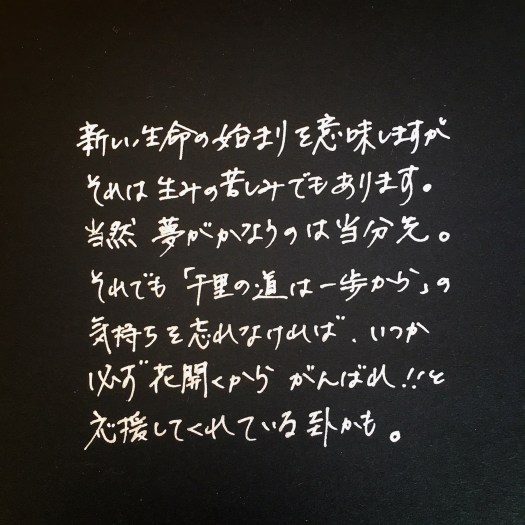 新しい生命の始まりを意味しますが
それは生みの苦しみでもあります。
当然 夢がかなうのは当分先。
それでも「千里の道は一歩から」の
気持ちを忘れなければ、いつか
必ず花開くから がんばれ!!と
応援してくれている卦かも。